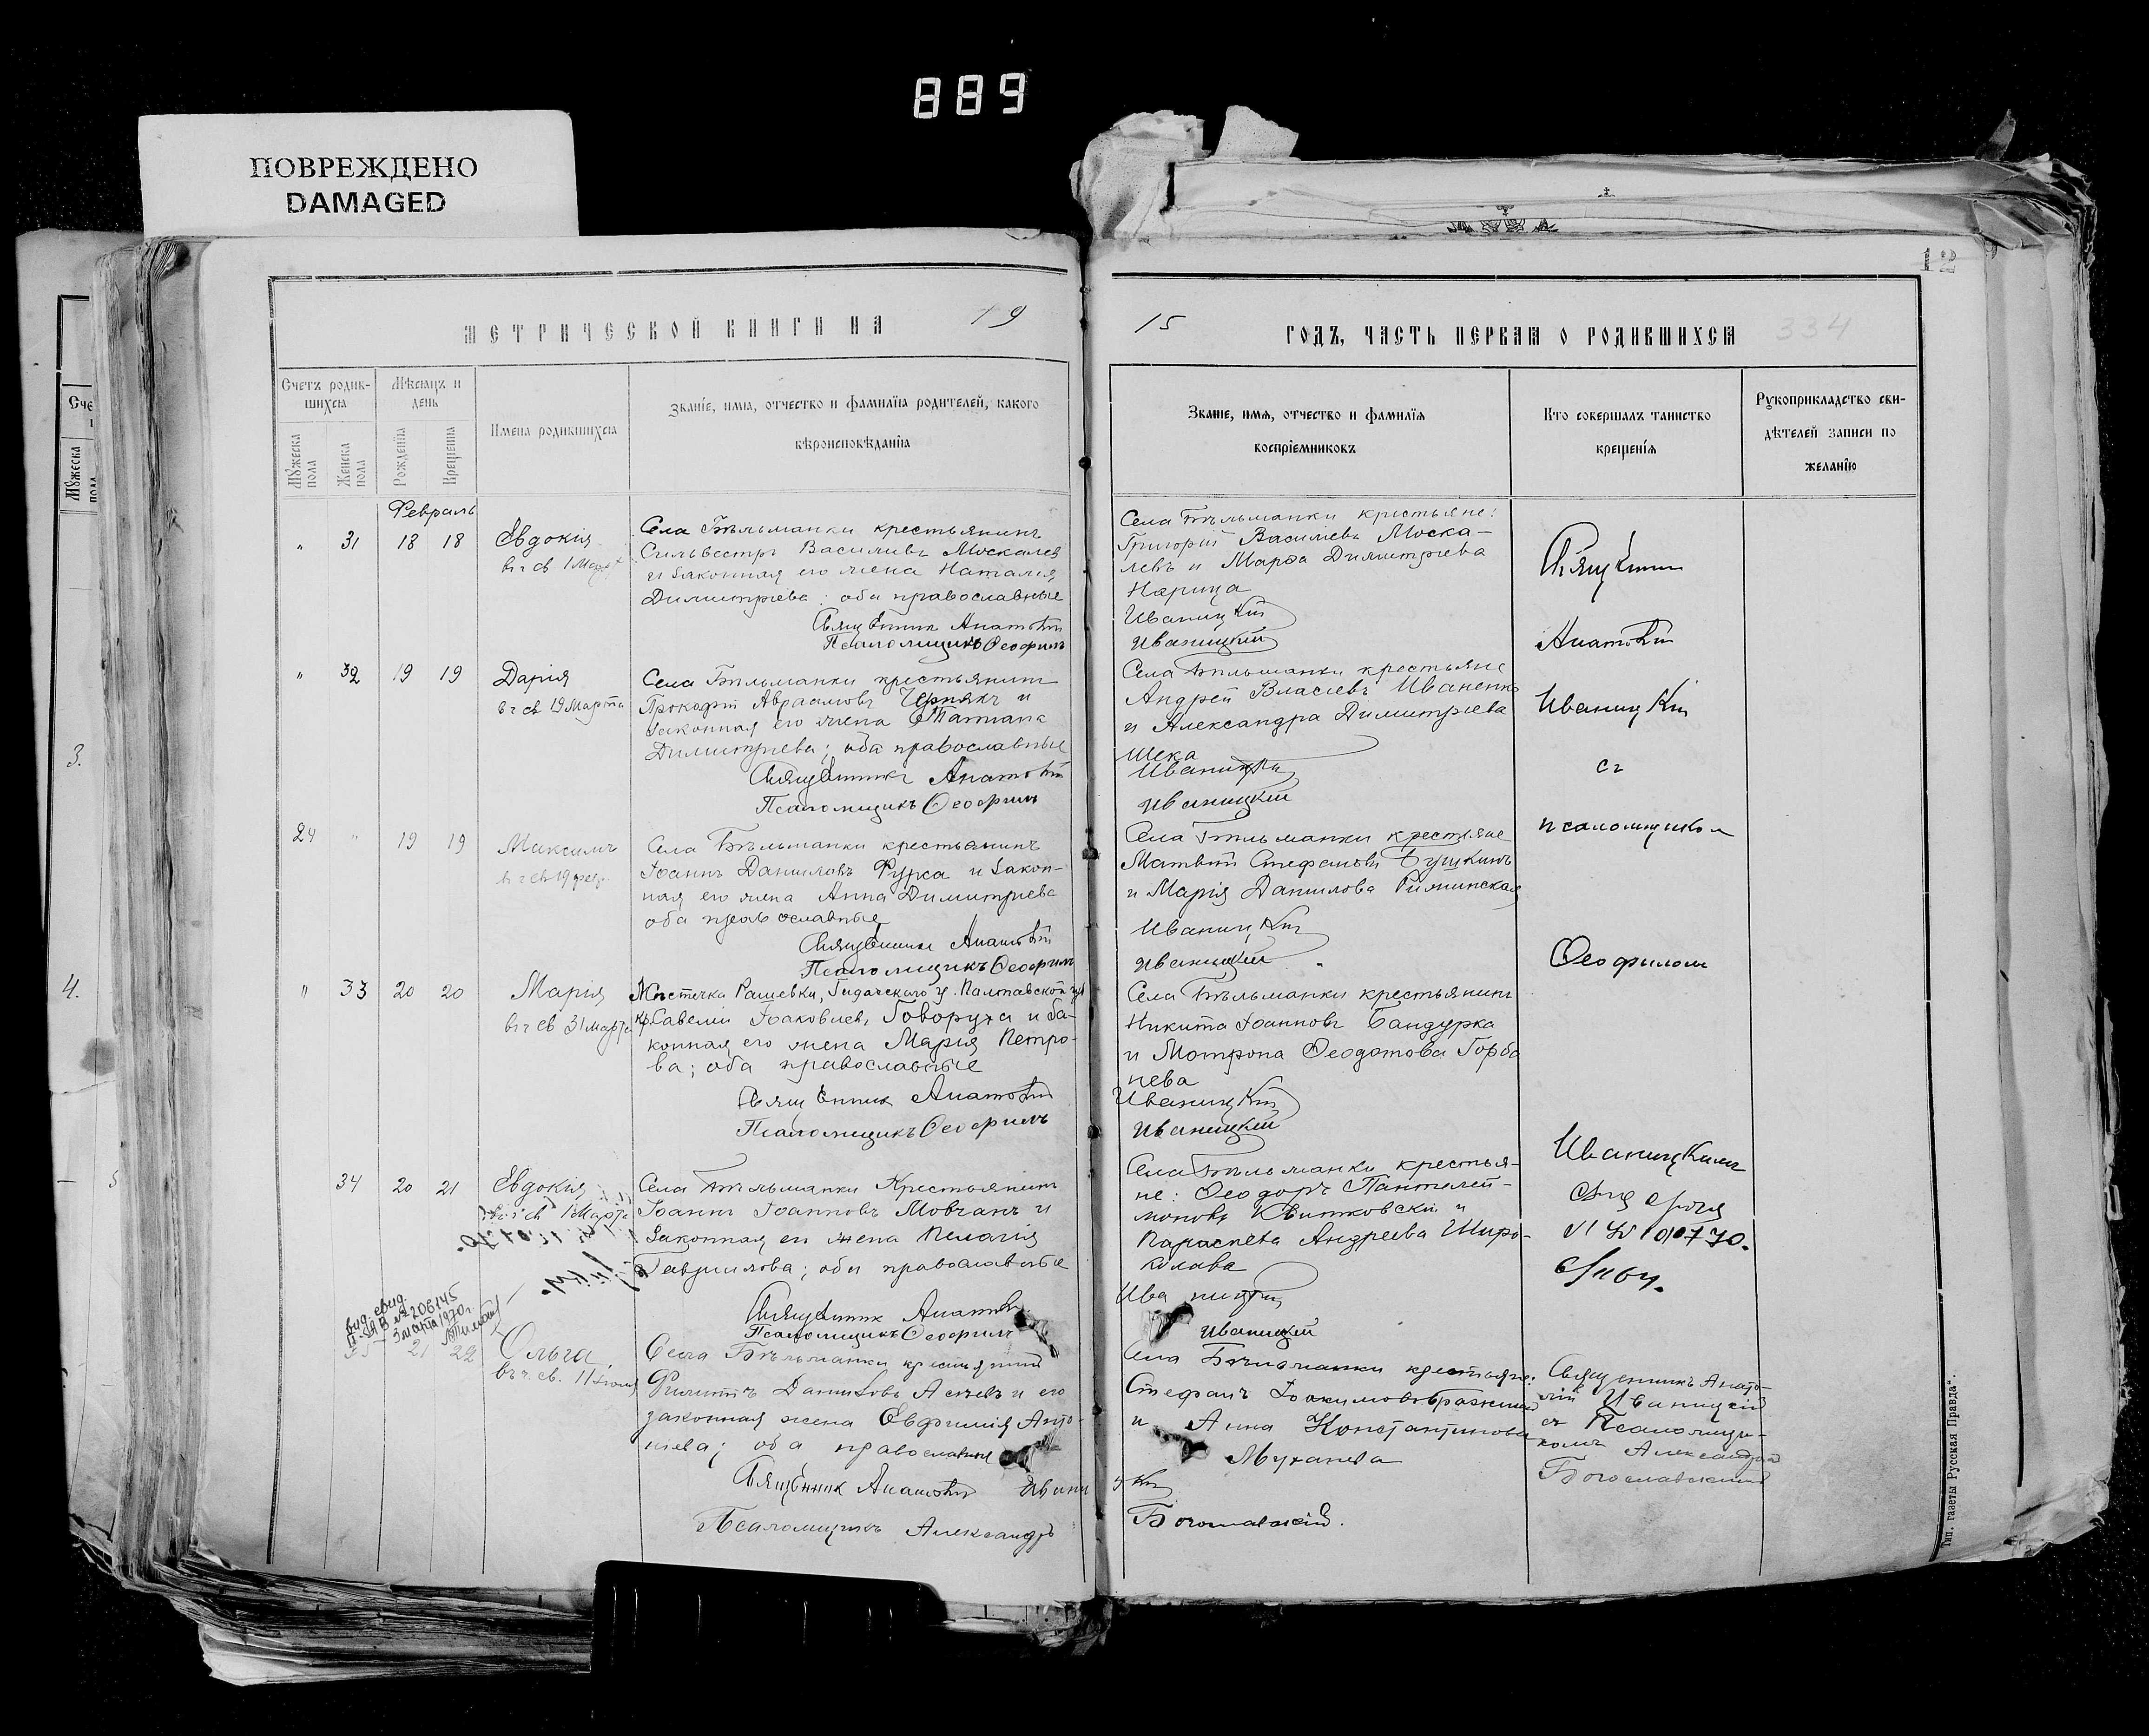 889
ПОВРЕЖДЕНО
DAMAGED
12
МЕТРИЧЕСКОЙ КНИГИ НА 19
15 ГОДЪ, ЧАСТЬ ПЕРВАЯ О РОДИВШИХСЯ 334
Счетъ родив-
шихся
Мѣсяцъ и
день
Имена родившихся
Званіе, имя, отчество и фамилія родителей, какого
вѣроисповѣданія
Мужеска
пола
Женска
пола
Рожденія
Крещенія
Званіе, имя, отчество и фамилія
воспріемниковъ
Кто совершалъ таинство
крещенія
Рукоприкладство сви-
дѣтелей записи по
желанію
Февраль
" 31 18 18 Евдокія
в ч св 1 Март
Села Бѣльманки крестьянинъ
Сильвестръ Василиевъ Москалев
и законная его жена Наталія
Димитріева; оба православные
Священник Анатолій
Псаломщикъ Ѳеофилъ
Села Бѣльманки крестьяне:
Григорій Василіевъ Моска-
левъ и Марѳа Димитріева
Нарица
Иваницкій
Иваницкій
Священник
Анатолій
Иваницкій
съ
псаломщиком
Ѳеофилом
Иваницкимъ
" 32 19 19 Дарія
в ч св 19 Марта
Села Бѣльманки крестьянинъ
Прокофій Авраамовъ Чернякъ и
законная его жена Татіана
Димитріева; оба православные
Священникъ Анатолій
Псаломщикъ Ѳеофилъ
Села Бѣльманки крестьяне
Андрей Власіевъ Иваненко
и Александра Димитріева
Шека
Иваницкій
Иваницкій
24 " 19 19 Максимъ
в ч св 19
Села Бѣльманки крестьянинъ
Іоаннъ Даниловъ Фурса и закон-
ная его жена Анна Димитріева
оба православные
Священник Анатолій
Псаломщикъ Ѳеофилъ
Села Бѣльманки крестьяне
Матвѣй Стефановъ Бушкинъ
и Марія Данилова
Иваницкій
Иваницкій
" 33 20 20 Марія
в ч св 31 марта
Мѣстечка Рашевки, Гадячского у. Полтавской губ
кр. Савелій Іаковлев. Говоруха и за-
конная его жена Марія Петро-
ва; оба православные
Священник Анатолій
Псаломщикъ Ѳеофилъ
Села Бѣльманки крестьянинъ
Никита Іоанновъ Бандурка
и Мотрона Ѳеодотова Горба
нева
Иваницкій
Иваницкій
34 20 21 Евдокія
св 1 Марта
Села Бѣльманки Крестьянинъ
Іоаннъ Іоанновъ Мовчанъ и
законная его жена Пелагія
Гавриилова; оба православные
Священник Анатолій
Псаломщикъ Ѳеофилъ
Села Бѣльманки крестья-
не: Ѳеодоръ Пантелей-
моновъ Квитковскій и
Параскева Андреева Широ-
колава
Иваницкій
Иваницкій
вид. свид.
3 марта 1970 г.
21 22 Ольга
въ ч. св. 11 Іюля
Села Бѣльманки крестьянинъ
Филиппъ Даниловъ и его
законная жена Евфимія Анто-
ніева; оба православные
Священник Анатолій Иваницкій
Псаломщикъ Александръ Богославскій.
Села Бѣльманки крестьяне:
Стефанъ Іоакимовъ
и Анна Константинова
Муханева
Священникъ Анато-
лій Иваницкій
съ Псаломщи-
комъ Александромъ
Богославскимъ
3.
4.
Тип. газеты Русская Правда".